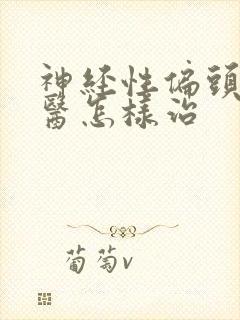 神经性偏頭
醫怎樣治
葡萄v